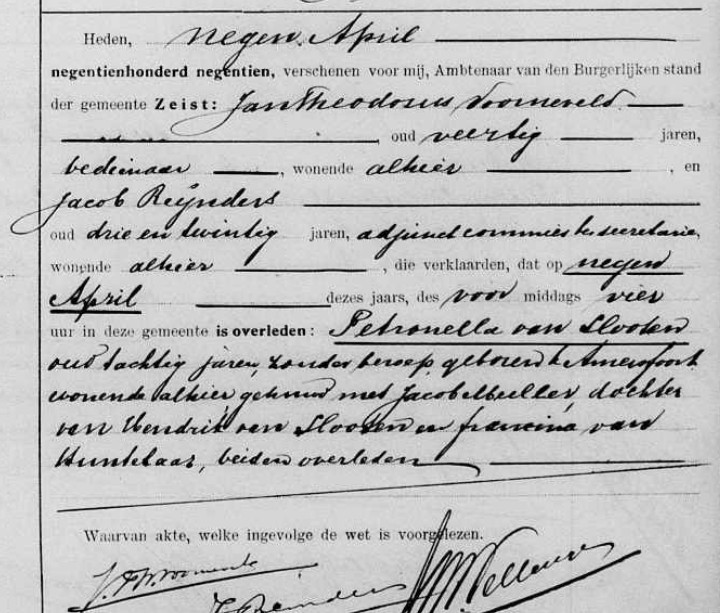 Heden, negen April
negentienhonderd negentien, verschenen voor mij, Ambtenaar van den Burgerlijken stand
der gemeente Zeist: Jan Theodorus Voorneveld
, oud veertig jaren,
bedienaar, wonende alhier, en
Jacob Reijnders
oud drie en twintig jaren, adjunct commies ter secretarie,
wonende alhier, die verklaarden, dat op negen
April dezes jaars, des voor middags vier
uur in deze gemeente is overleden: Petronella van Slooten
oud tachtig jaren, zonder beroep, geboren te Amersfoort
wonende alhier gehuwd met Jacob Mueller, dochter
van Hendrik van Slooten en Francina van
Huntelaar, beiden overleden
Waarvan akte, welke ingevolge de wet is voorgelezen.